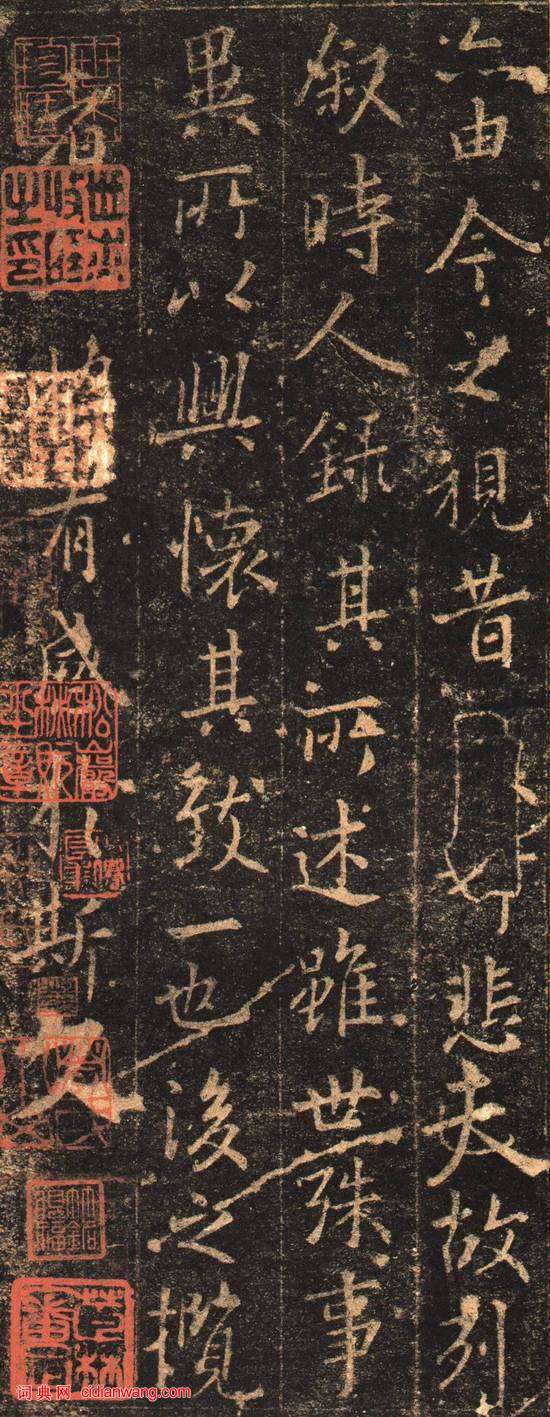 亦由今之視昔悲夫故列
叙時人錄其所述雖世殊事
異所以興懷其致一也後之攬
者將有感於斯文
词典网 cidianwang.com